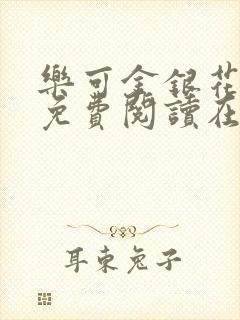 樂可金銀花
免費閱讀在
耳東兔子